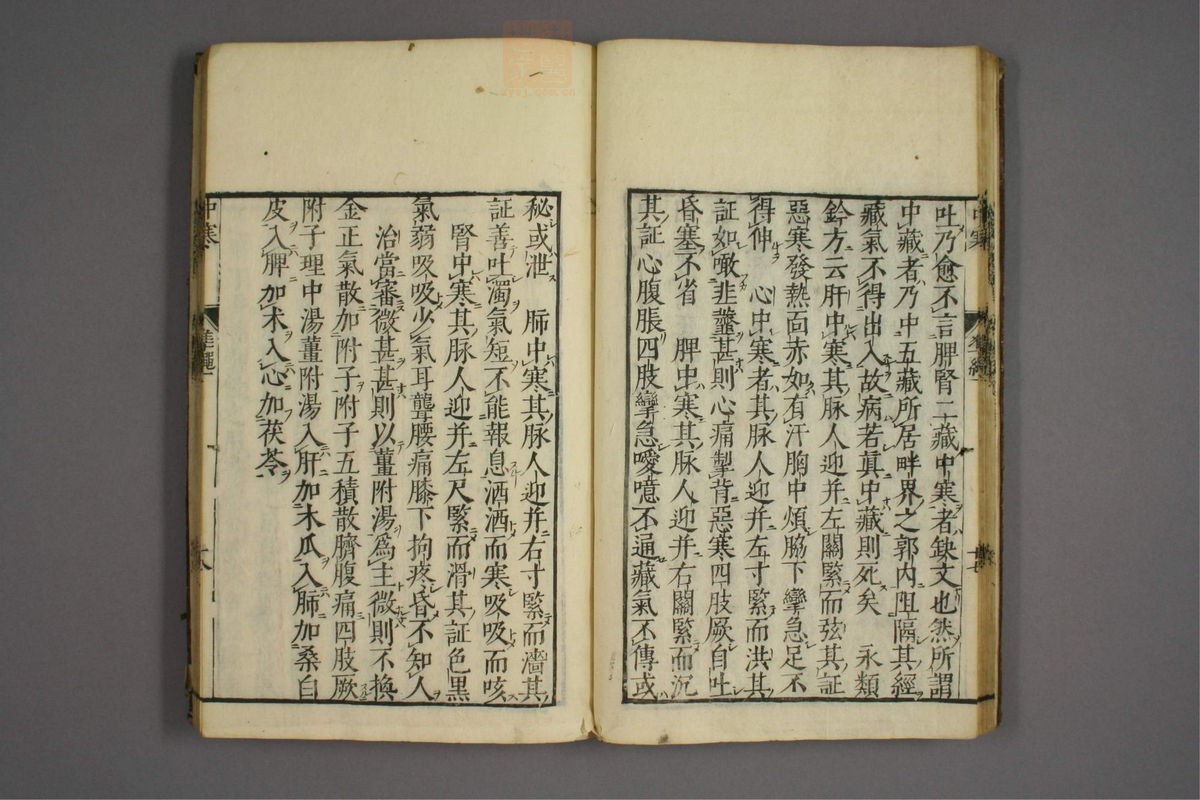 吐乃愈不言脾腎二藏中寒者缺文也然所謂
中藏者乃中五藏所居畔界之郭內阻隔其經
藏氣不得出入故病若眞中藏則死矣　永類
鈐方云肝中寒其脉人迎并左關緊而弦其証
惡寒發熱面赤如有汗胸中煩脇下攣急足不
得伸　心中寒者其脉人迎并左寸緊而洪其
証如噉韭虀甚則心痛掣背惡寒四肢厥自吐
昏塞不省　脾中寒其脉人迎并右關緊而沉
其証心腹脹四肢攣急噯噫不通藏氣不傳或
秘或泄　肺中寒其脉人迎并右寸緊而濇其
証善吐濁氣短不能報息洒洒而寒吸吸而咳
腎中寒其脉人迎并左尺緊而滑其証色黑
氣弱吸吸少氣耳聾腰痛膝下拘疼昏不知人
治當審微甚甚則以薑附湯爲主微則不換
金正氣散加附子附子五積散臍腹痛四肢厥
附子理中湯薑附湯入肝加木瓜入肺加桑白
皮入脾加朮入心加茯苓
中寒